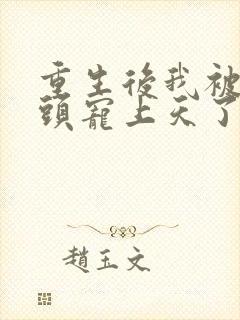 重生後我被
頭寵上天了
趙玉文